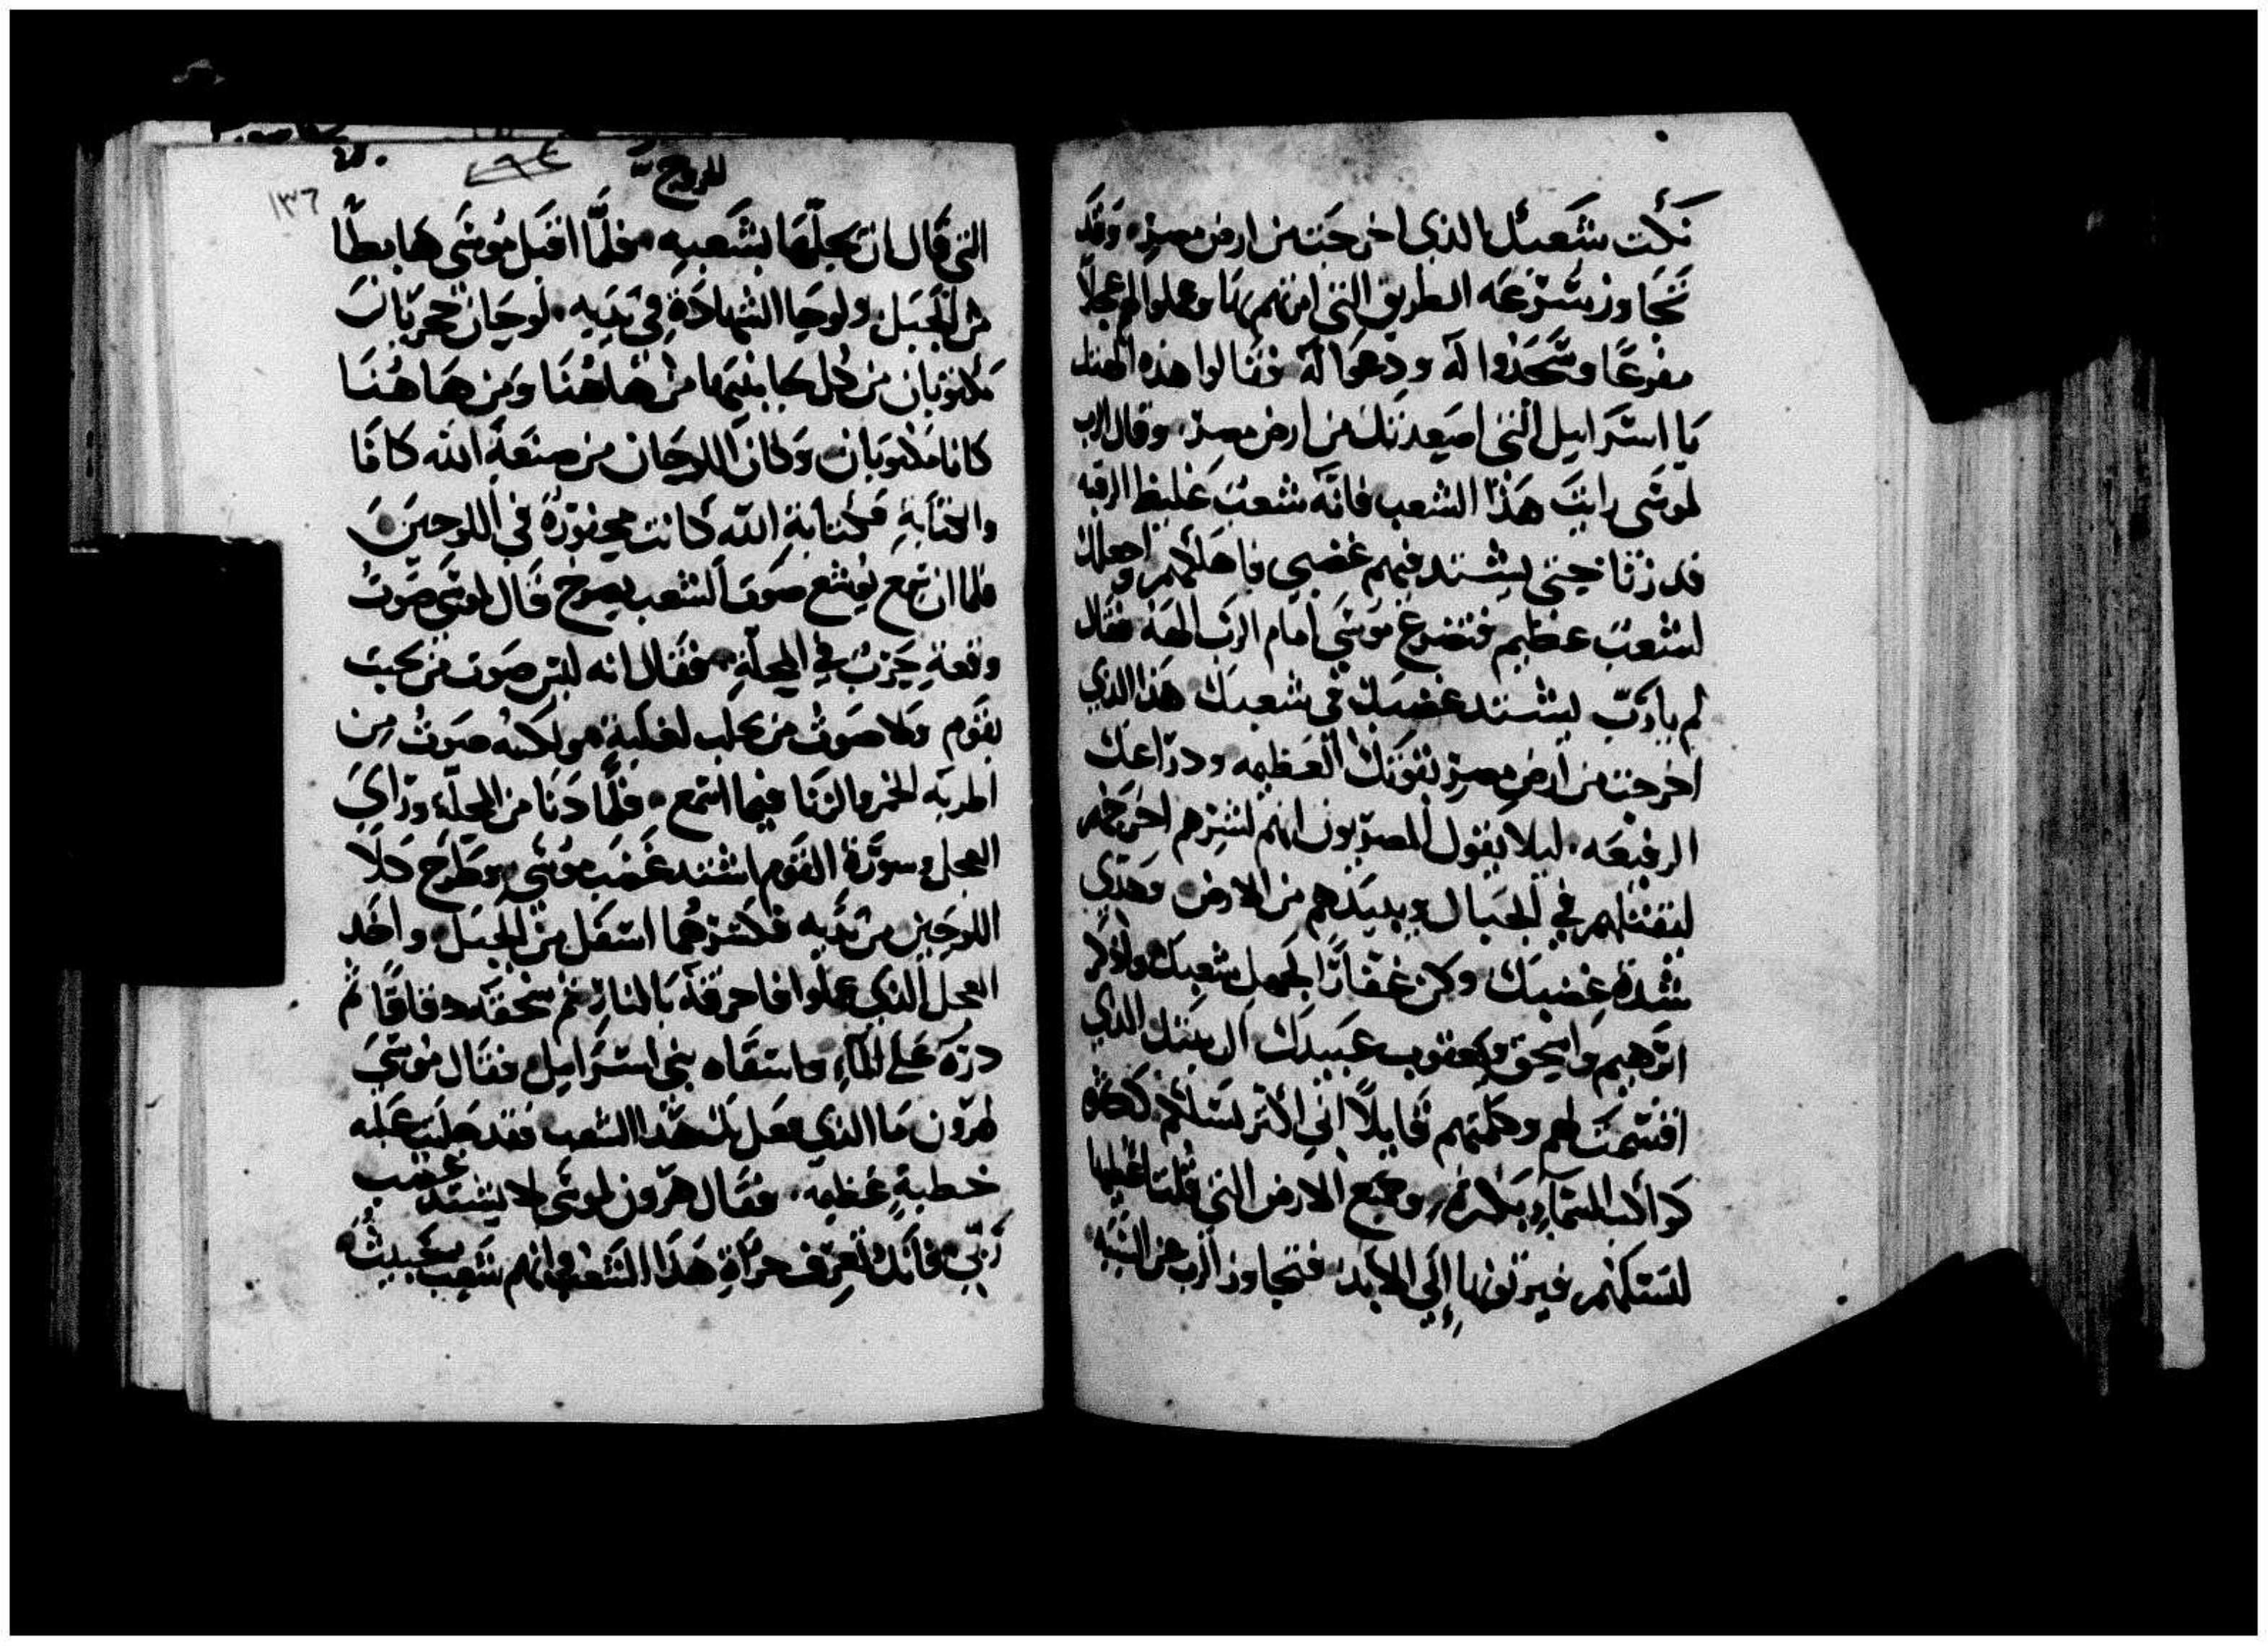 نكث شعبك الذي اخرجت من ارض مصر. وقد
تجاوز بسرعه الطريق التي امرتهم بها وعملوا لهم عجلًا
مفرغًا وسجدوا له وذبحوا له فقالوا هذه الهتك
يا اسرايل التي اصعدتك من ارض مصر. وقال الرب
لموسى رايت هذا الشعب فانه شعب غليظ الرقبه
فدرنا حتى يشتد فيهم غضبي فاهلكهم واجعلك
لشعب عظيم فتضرع موسى امام الرب الهه فقال
لم يا رب يشتد غضبك في شعبك هذا الذي
اخرجت من ارض مصر بقوتك العظيمه ودراعك
الرفيعه. ليلا يقول المصريون انهم لشرهم اخرجهم
ليقتلهم في الجبال ويبيدهم من الارض وهدي
شدة غضبك وكن غفارًا لجهل شعبك واذكر
ابرهيم واسحق ويعقوب عبيدك ال الذي
اقسمت لهم وكلمتهم قايلًا اني اكثر نسلكم كثره
كواكب السماء بكثره وجميع الارض التي قلت اعطيها
لنسلكم فيرثونها الي الابد. فتجاوز الرب عن السيه
للروح
١٣٦
التي قال ان يحلها بشعبه. فلما اقبل موسى هابطًا
من الجبل ولوحا الشهادة في يديه. لوحان حجريان
مكتوبان من كل جانبيهما من هاهنا ومن هاهنا
كانا مكتوبان وكان اللوحان من صنعة الله كانا
والكتابة فكتابة الله كانت محفورة في اللوحين
فلما ان سمع يوشع صوت الشعب يصرخ قال لموسى صوت
وقعة حرب في المحلة. فقال انه ليس صوت من تحب
بقوم ولا صوت من لغلبة ولكنه صوت من
اطربه الخمر والزنا فيما اسمع. فلما دنا من المحلة وراي
العجل وسورة القوم اشتد غضب موسى وطرح كلا
اللوحين من يديه فكسرهما اسفل من الجبل واخد
العجل الذي عملوا فاحرقه بالنار ثم سحقه دقاقًا ثم
دره على الماء واسقاه بني اسرايل فقال موسى
لهرون ما الذي فعل بك هذا الشعب فقد جلبت عليه
خطية عظيمه. فقال هرون لموسى لا يشتد غضب
ربي فانك تعرف جراة هذا الشعب وانهم شعب خبيث